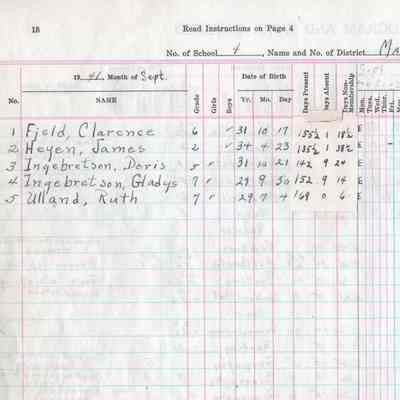 18 Read Instructions on Page 4
No. of School 4, Name and No. of District
1941, Month of Sept.
Date of Birth
No. NAME Grade Girls Boys Yr. Mo. Day Days Present Days Absent Days Non-Membership Mon. Tues. Wed. Thur. Fri.
1 Fjeld, Clarence 6 ✓ 31 10 17 1 E
2 Heyen, James 2 ✓ 34 4 23 1 E
3 Ingebretson, Doris 5 ✓ 31 10 21 142 9 24 E
4 Ingebretson, Gladys 7 ✓ 29 9 30 152 9 14 E
5 Ulland, Ruth 7 ✓ 29 7 4 169 0 6 E